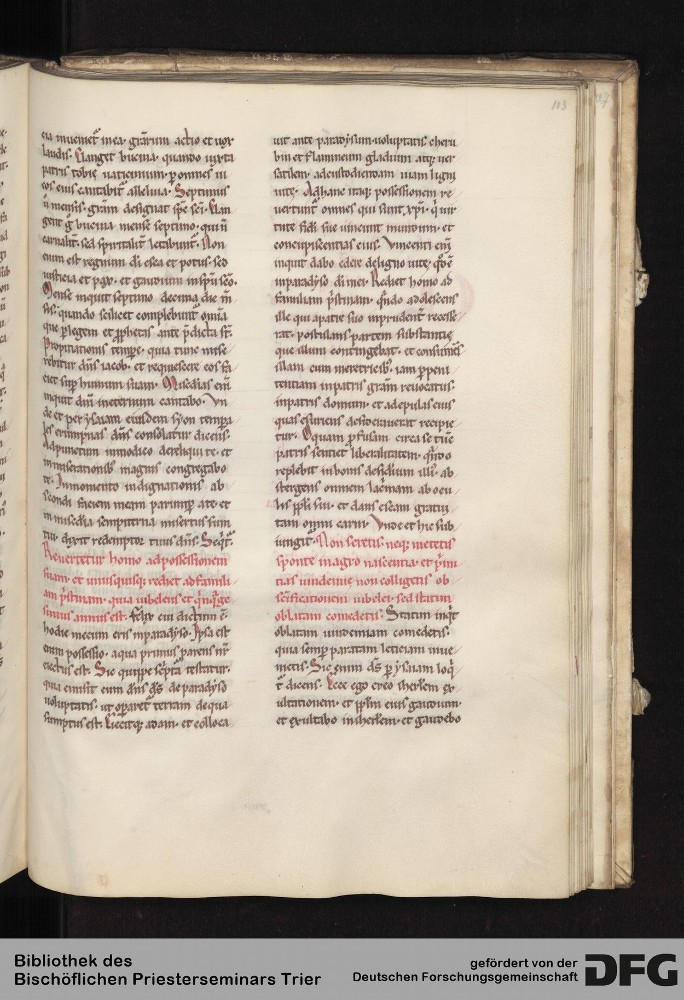 113
cia inueniet̄ in ea. gr̄arum actio et uox
laudis. Clanget buccina. quando iuxta
patris tobie uaticinium. ꝑ omnes ui
cos eius cantabit̄ alleluia. Septimus
ū mensis. gr̄am designat sp̄c sc̄i. Clan
carnalit̄. sed spiritalit̄ letabunt̄. Non
enim est regnum di esca et potus. sed
iusticia et pax. et gaudium in spū sc̄o.
Mense inquit septimo decima die m̄
sis. quando scilicet complebunt̄ om̄ia
que ꝑ legem et ꝓphetas ante p̄dicta st̄.
Propitiationis tempe. quia tunc mise
rebitur dn̄s iacob. et requiescere eos fa
ciet suꝑ humum suam. Misc̄dias em̄
inquit dn̄i in eternum cantabo. Vn
de et per ysaiam eiusdem syon
dn̄s consolatur dicens.
Ad punctum in modico dereliqui te. et
in miserationib; magnis congregabo
te. In momento indignationis ab
scondi faciem meam parumꝑ a te. et
in misc̄dia sempiterna misertus sum
tui. dixit redemptor tuus dn̄s. Seqt̄.
Reuertetur homo ad possessionem
suam. et unusquisq; rediet ad famili
am p̄stinam. quia iubeleus est
annus est. Felix cui dictum ē.
hodie mecum eris in paradyso. Ipsa est
enim possessio. a qua primus parens nr̄
eiectus est. Sic quippe sc̄pta testatur.
quia emisit eum dn̄s ds̄ de paradyso
uoluptatis. ut oꝑaret̄ terram de qua
sumptus est. Eiecitq; adam. et colloca
uit ante paradysum uoluptatis cheru
bin et flammeum gladium atq; uer
satilem. ad custodiendam uiam ligni
uite. Ad hanc itaq; possessionem re
uertunt̄ omnes qui sunt xp̄i. q̄ uir
tute fidi sue uincunt mundum. et
concupiscentias eius. Vincenti em̄
inquit dabo edere de ligno uite. qđ ē
in paradyso di mei. Rediet homo ad
familiam p̄stinam. qn̄do adolescens
ille qui a patre suo inprudent̄ recesse
rat. postulans partem substantie
que illum contingebat. et consumēs
illam cum meretricib;. iam ꝑ peni
tentiam in patris gr̄am reuocatus.
in patris domum. et ad epulas eius
quas esuriens desiderauerat recipie
tur. O quam ꝓfusam circa se tūc
patris sentiet liberalitatem. qn̄do
replebit in bonis desidium illi. ab
stergens omnem lacrimam ab ocu
lis ppli sui. et dans escam gratui
tam omni carni. Vnde et hic sub
iungit. Non seretis neq; metetis
sponte in agro nascentia. et p̄mi
tias uindemie non colligetis ob
sc̄ificationem iubelei. sed statim
oblatam comedetis. Statim inqt̄
oblatam uindemiam comedetis.
quia semꝑ paratam leticiam inue
nietis. Sic enim ds̄ ꝑ ysaiam loq̄
t̄ dicens. Ecce ego creo iherl̄em ex
ultationem. et ppl̄m eius gaudium.
et exultabo in iherl̄em. et gaudebo
Bibliothek des
Bischöflichen Priesterseminars Trier
gefördert von der
Deutschen Forschungsgemeinschaft
DFG